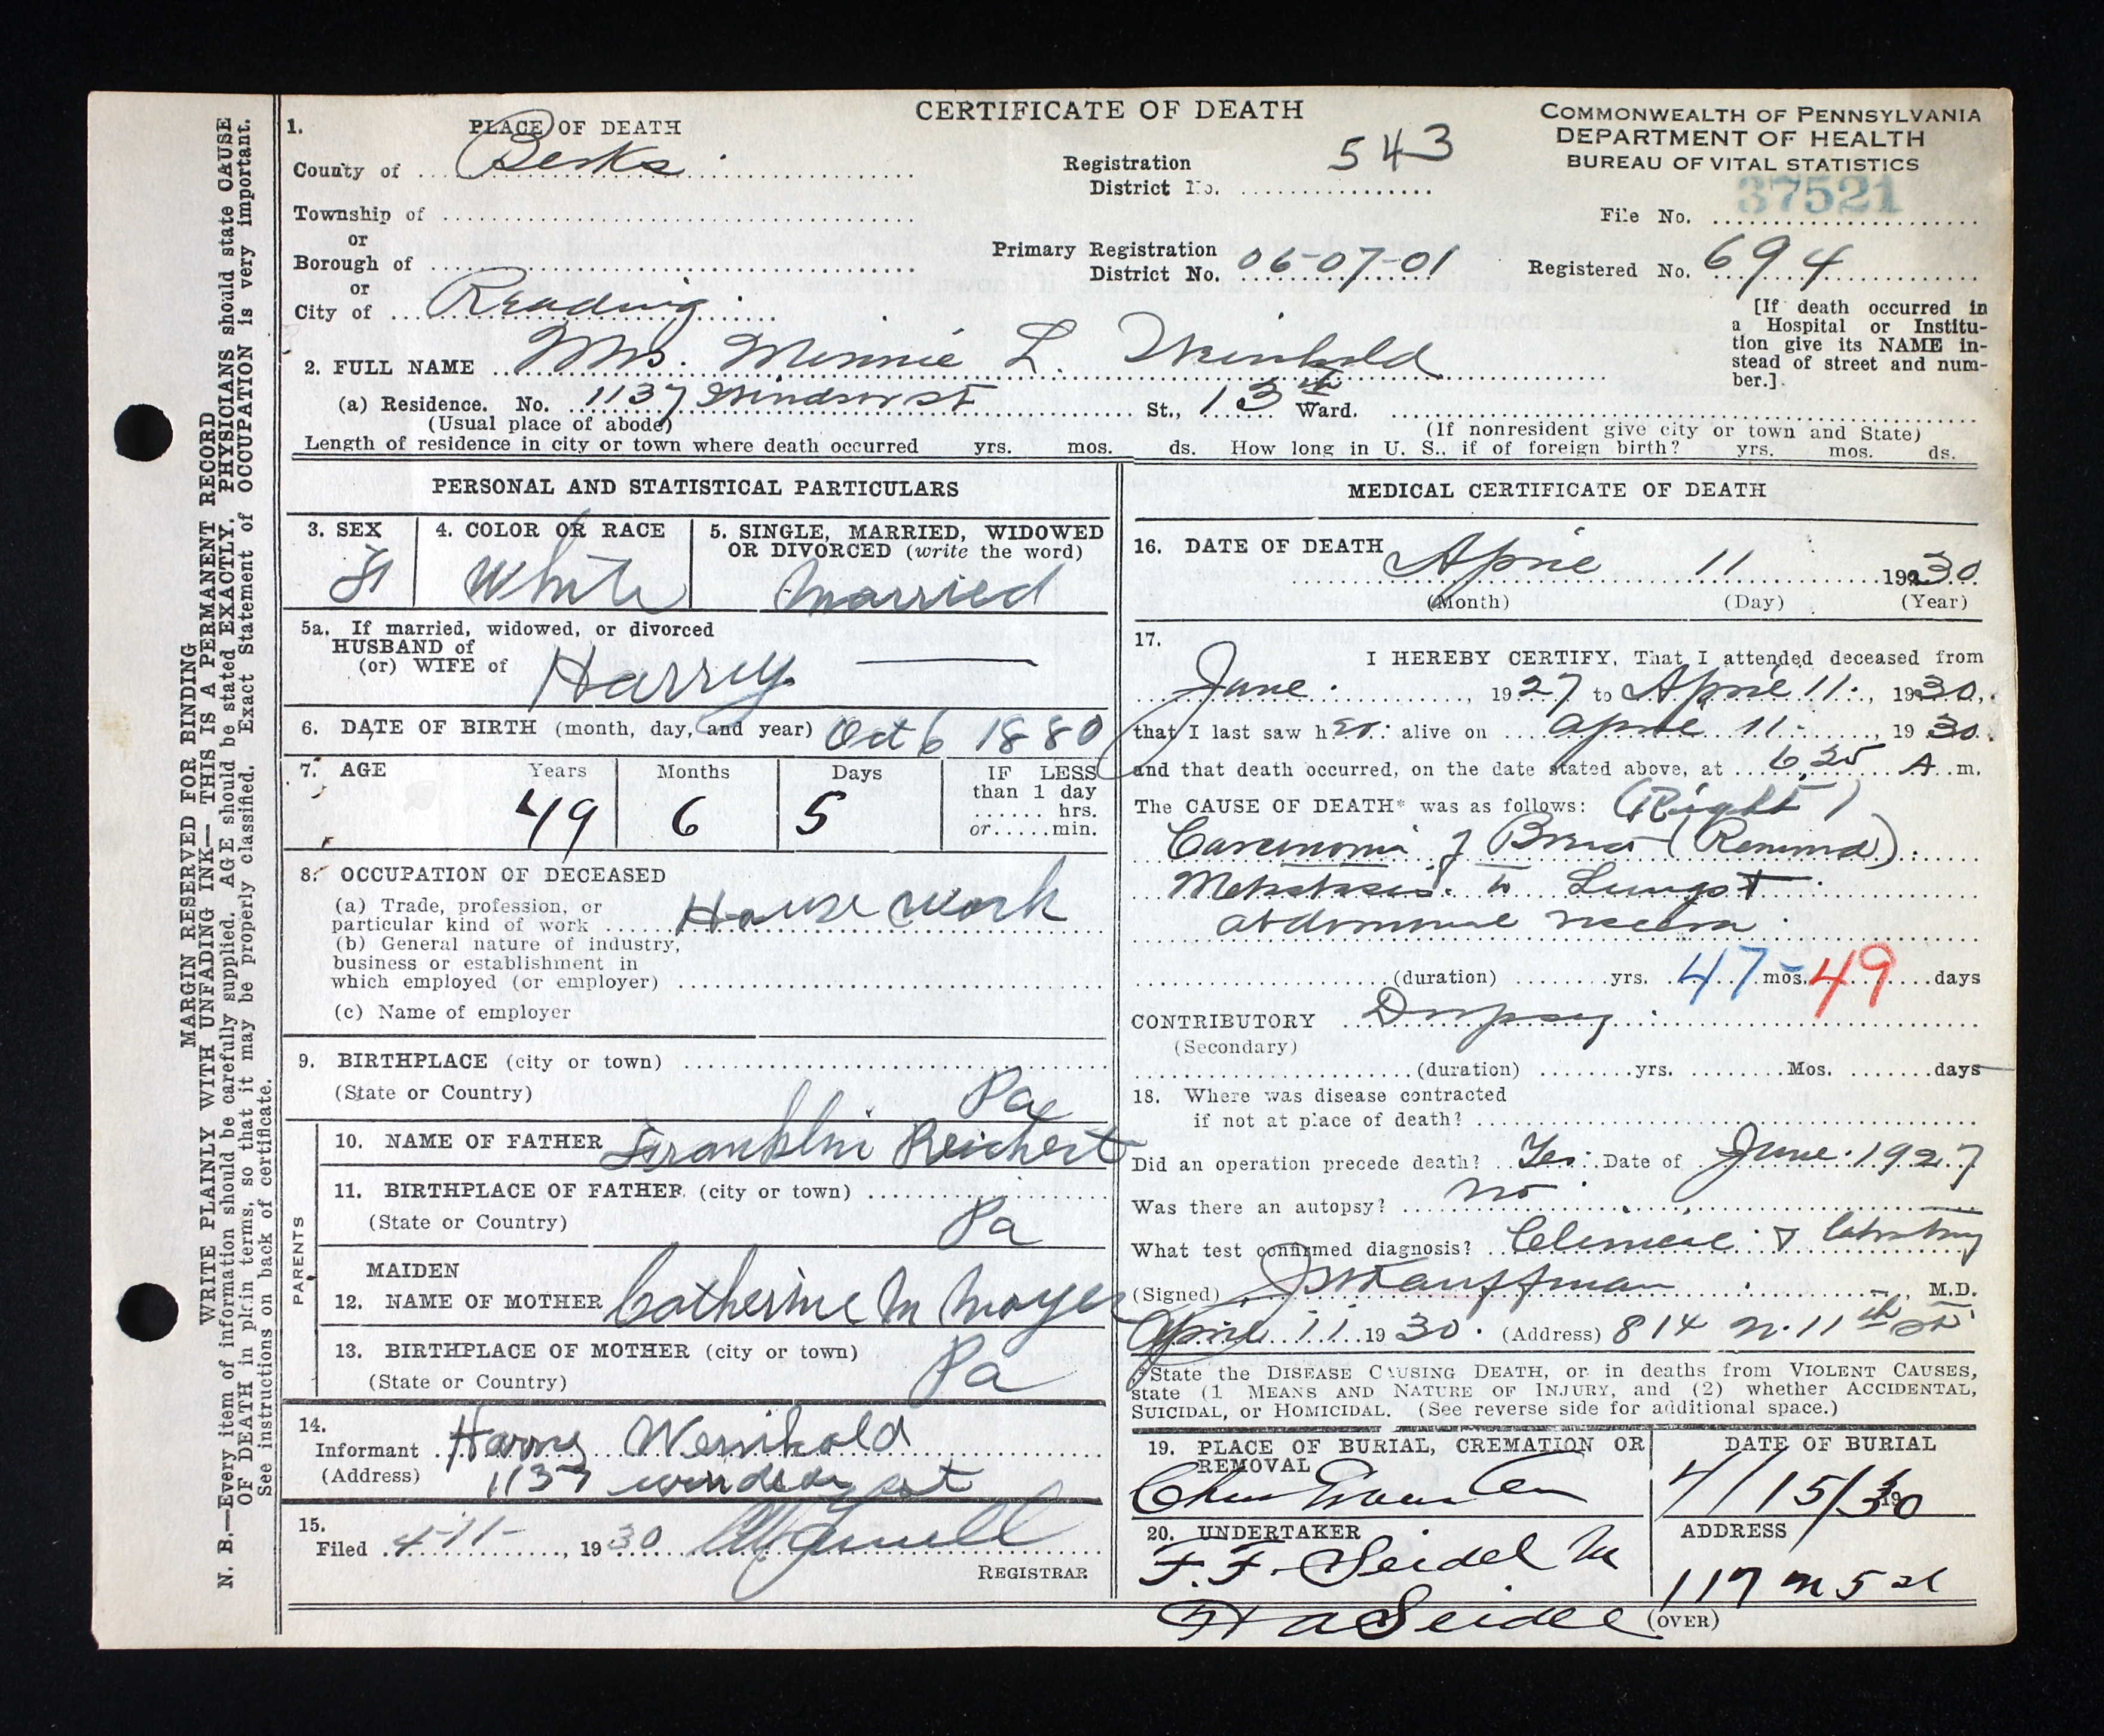 CERTIFICATE OF DEATH
COMMONWEALTH OF PENNSYLVANIA
DEPARTMENT OF HEALTH
BUREAU OF VITAL STATISTICS
1. PLACE OF DEATH
County of Berks
Registration District No. 543
37521
File No.
Township of
or
Borough of
or
Primary Registration
District No. 06-07-01
Registered No. 694
City of Reading
[If death occurred in
a Hospital or Institu-
tion give its NAME in-
stead of street and num-
ber.]
2. FULL NAME Mrs. Minnie L. Weinhold
(a) Residence. No. 1137 Windsor st St., 13th Ward.
(Usual place of abode)
(If nonresident give city or town and State)
Length of residence in city or town where death occurred yrs. mos. ds. How long in U. S., if of foreign birth? yrs. mos. ds.
PERSONAL AND STATISTICAL PARTICULARS
3. SEX
F
4. COLOR OR RACE
White
5. SINGLE, MARRIED, WIDOWED
OR DIVORCED (write the word)
Married
5a. If married, widowed, or divorced
HUSBAND of
(or) WIFE of Harry
6. DATE OF BIRTH (month, day, and year) Oct 6 1880
7. AGE Years Months Days IF LESS
than 1 day
hrs.
or min.
49 6 5
8. OCCUPATION OF DECEASED
(a) Trade, profession, or
particular kind of work House work
(b) General nature of industry,
business or establishment in
which employed (or employer)
(c) Name of employer
9. BIRTHPLACE (city or town)
(State or Country) Pa
PARENTS
10. NAME OF FATHER Franklin Reichert
11. BIRTHPLACE OF FATHER (city or town)
(State or Country) Pa
MAIDEN
12. NAME OF MOTHER Catherine M Moyer
13. BIRTHPLACE OF MOTHER (city or town)
(State or Country) Pa
14.
Informant Harry Weinhold
(Address) 1137 windsor st
15.
Filed 4-11-, 1930
REGISTRAR
MEDICAL CERTIFICATE OF DEATH
16. DATE OF DEATH April 11 1930
(Month) (Day) (Year)
17.
I HEREBY CERTIFY, That I attended deceased from
June, 1927 to April 11, 1930,
that I last saw her alive on April 11, 1930.
and that death occurred, on the date stated above, at 6.35 A. m.
The CAUSE OF DEATH* was as follows: (Right)
Carcinoma of Breast (Removed).
Metastasis to Lungs +
abdominal viscera.
(duration) yrs. 47- mos. 49 days
CONTRIBUTORY Dropsy
(Secondary)
(duration) yrs. Mos. days
18. Where was disease contracted
if not at place of death?
Did an operation precede death? Yes. Date of June. 1927
Was there an autopsy? No
What test confirmed diagnosis? Clinical & laboratory
(Signed) J W Kauffman, M.D.
April 11 1930. (Address) 814 N. 11th St
*State the DISEASE CAUSING DEATH, or in deaths from VIOLENT CAUSES,
state (1 MEANS AND NATURE OF INJURY, and (2) whether ACCIDENTAL,
SUICIDAL, or HOMICIDAL. (See reverse side for additional space.)
19. PLACE OF BURIAL, CREMATION OR
REMOVAL
DATE OF BURIAL
Chas Evans Cem
4/15/30
20. UNDERTAKER
ADDRESS
F. F. Seidel
117 N 5 st
H A Seidel
(OVER)
MARGIN RESERVED FOR BINDING
WRITE PLAINLY WITH UNFADING INK—THIS IS A PERMANENT RECORD
N. B.—Every item of information should be carefully supplied. AGE should be stated EXACTLY. PHYSICIANS should state CAUSE
OF DEATH in plain terms, so that it may be properly classified. Exact Statement of OCCUPATION is very important.
See instructions on back of certificate.